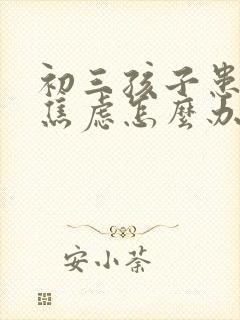 初三孩子患
焦虑怎麼办
安小荼